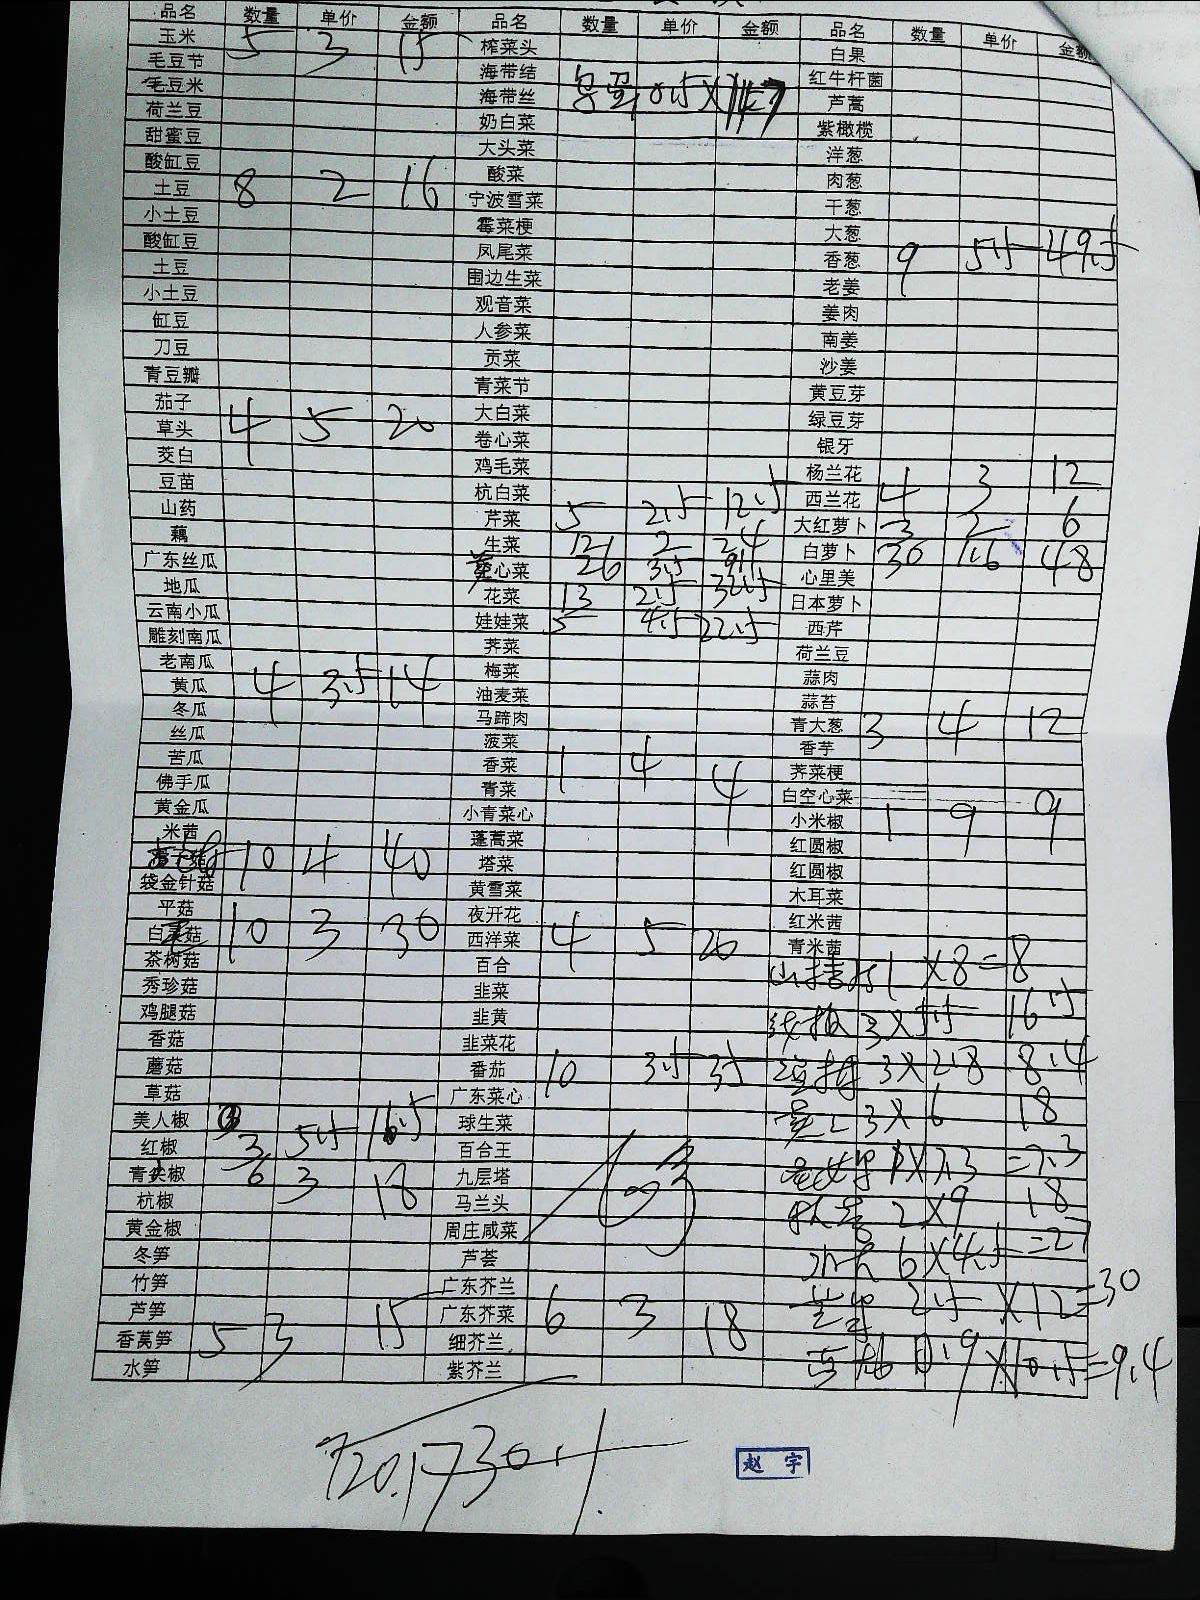 品名 数量 单价 金额 品名 数量 单价 金额 品名 数量 单价 金额
玉米 5 3 15 榨菜头 白果
毛豆节 海带结 红牛杆菌
毛豆米 海带丝 0.5 X 147 芦蒿
荷兰豆 奶白菜 紫橄榄
甜蜜豆 大头菜 洋葱
酸缸豆 酸菜 肉葱
土豆 8 2 16 宁波雪菜 干葱
小土豆 霉菜梗 大葱
酸缸豆 凤尾菜 香葱 9 5.5 49.5
土豆 围边生菜 老姜
小土豆 观音菜 姜肉
缸豆 人参菜 南姜
刀豆 贡菜 沙姜
青豆瓣 青菜节 黄豆芽
茄子 大白菜 绿豆芽
草头 4 5 20 卷心菜 银牙
茭白 鸡毛菜 杨兰花
豆苗 杭白菜 西兰花 4 3 12
山药 芹菜 5 2.5 12.5 大红萝卜 3 2 6
藕 生菜 12 2 24 白萝卜 30 1.6 48
广东丝瓜 心菜 26 3.5 91 心里美
地瓜 花菜 13 2.5 32.5 日本萝卜
云南小瓜 娃娃菜 5 4.5 22.5 西芹
雕刻南瓜 荠菜 荷兰豆
老南瓜 梅菜 蒜肉
黄瓜 4 3.5 14 油麦菜 蒜苔
冬瓜 马蹄肉 青大葱 3 4 12
丝瓜 菠菜 香芋
苦瓜 香菜 1 4 4 荠菜梗
佛手瓜 青菜 白空心菜
黄金瓜 小青菜心 小米椒 1 9 9
米茜 蓬蒿菜 红圆椒
10 4 40 塔菜 红圆椒
袋金针菇 黄雪菜 木耳菜
平菇 夜开花 红米茜
白菇 10 3 30 西洋菜 4 5 20 青米茜
茶树菇 百合 1 X 8 = 8
秀珍菇 韭菜
鸡腿菇 韭黄 线椒 3 X 5.5 16.5
香菇 韭菜花
蘑菇 番茄 10 3.5 35 3 X 2.8 8.4
草菇 广东菜心
美人椒 球生菜 3 X 6 18
红椒 3 5.5 16.5 百合王
青尖椒 6 3 18 九层塔 1 X 7.3 = 7.3
杭椒 马兰头 2 X 9 18
黄金椒 周庄咸菜
冬笋 芦荟 6 X 4.5 = 27
竹笋 广东芥兰
芦笋 广东芥菜 6 3 18 2.5 X 12 = 30
香莴笋 5 3 15 细芥兰
水笋 紫芥兰 0.9 X 10.5 = 9.4
720.1 730.1
赵宇